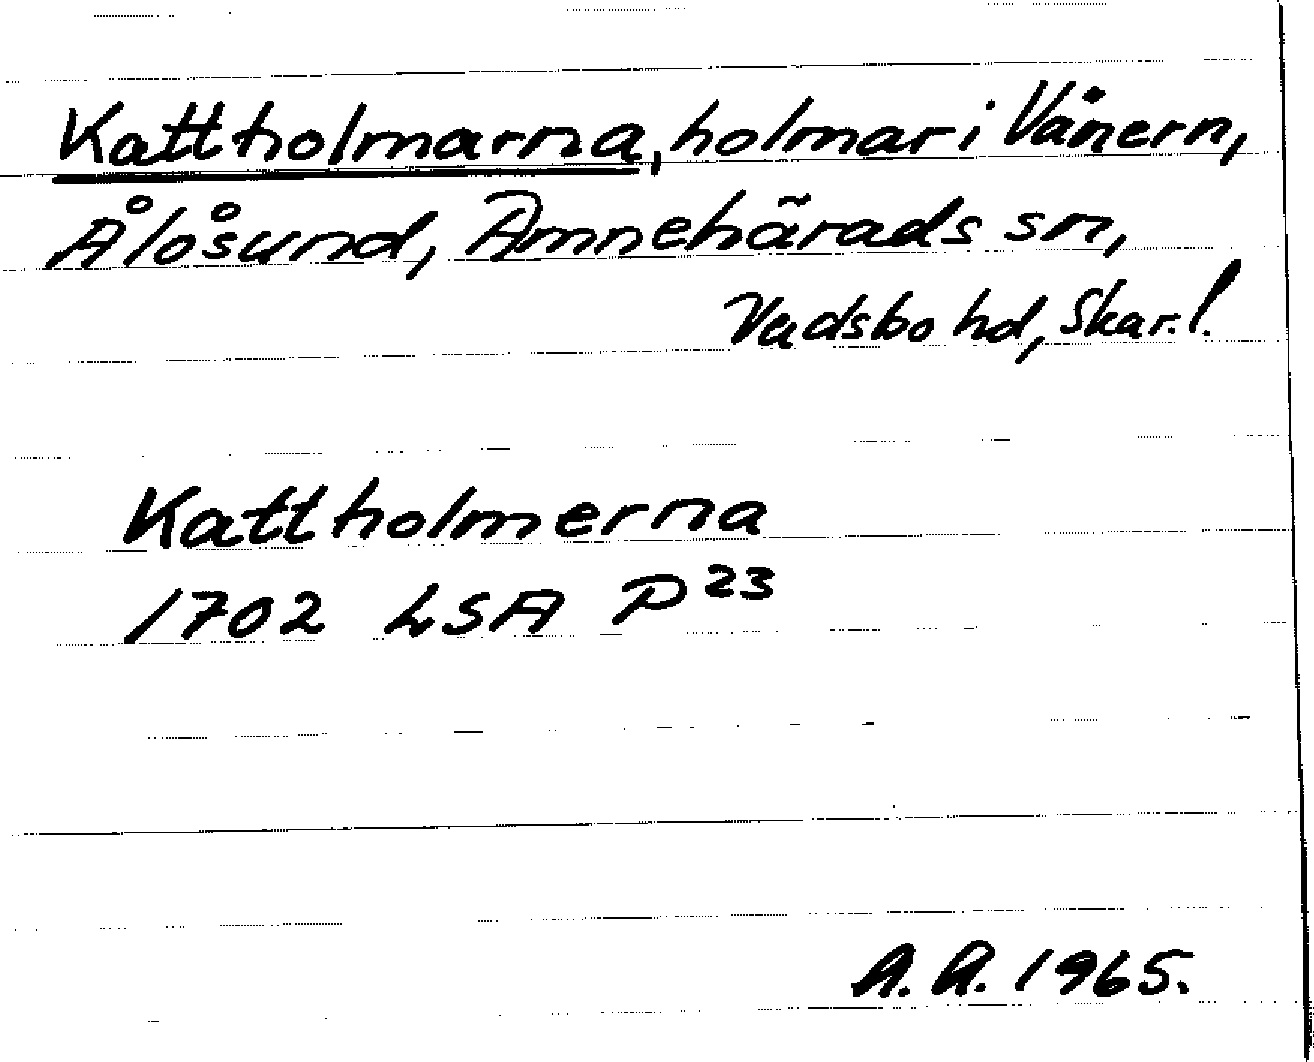 Kattholmarna, holmar i Vänern,
Ålösund, Amnehärads sn,
Vadsbo hd, Skar. l.
Kattholmerna
1702 LSA P 23
A. A. 1965.